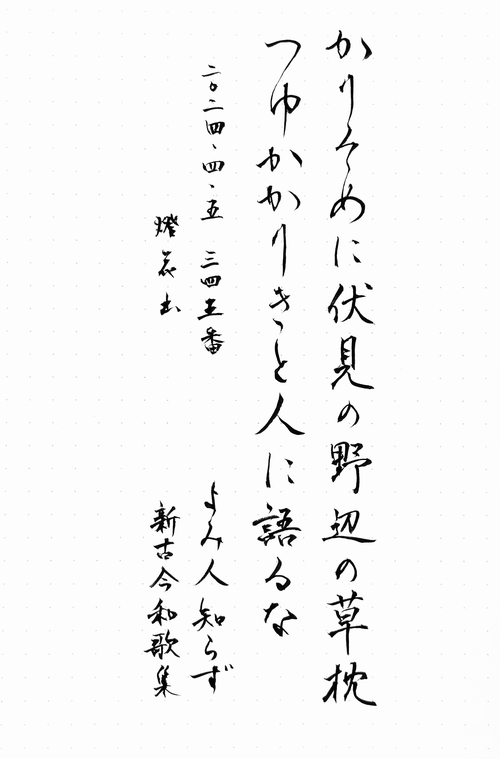 かりそめに伏見の野辺の草枕
つゆかかりきと人に語るな
二〇二四、四、五 三四五番
よみ人知らず
新古今和歌集